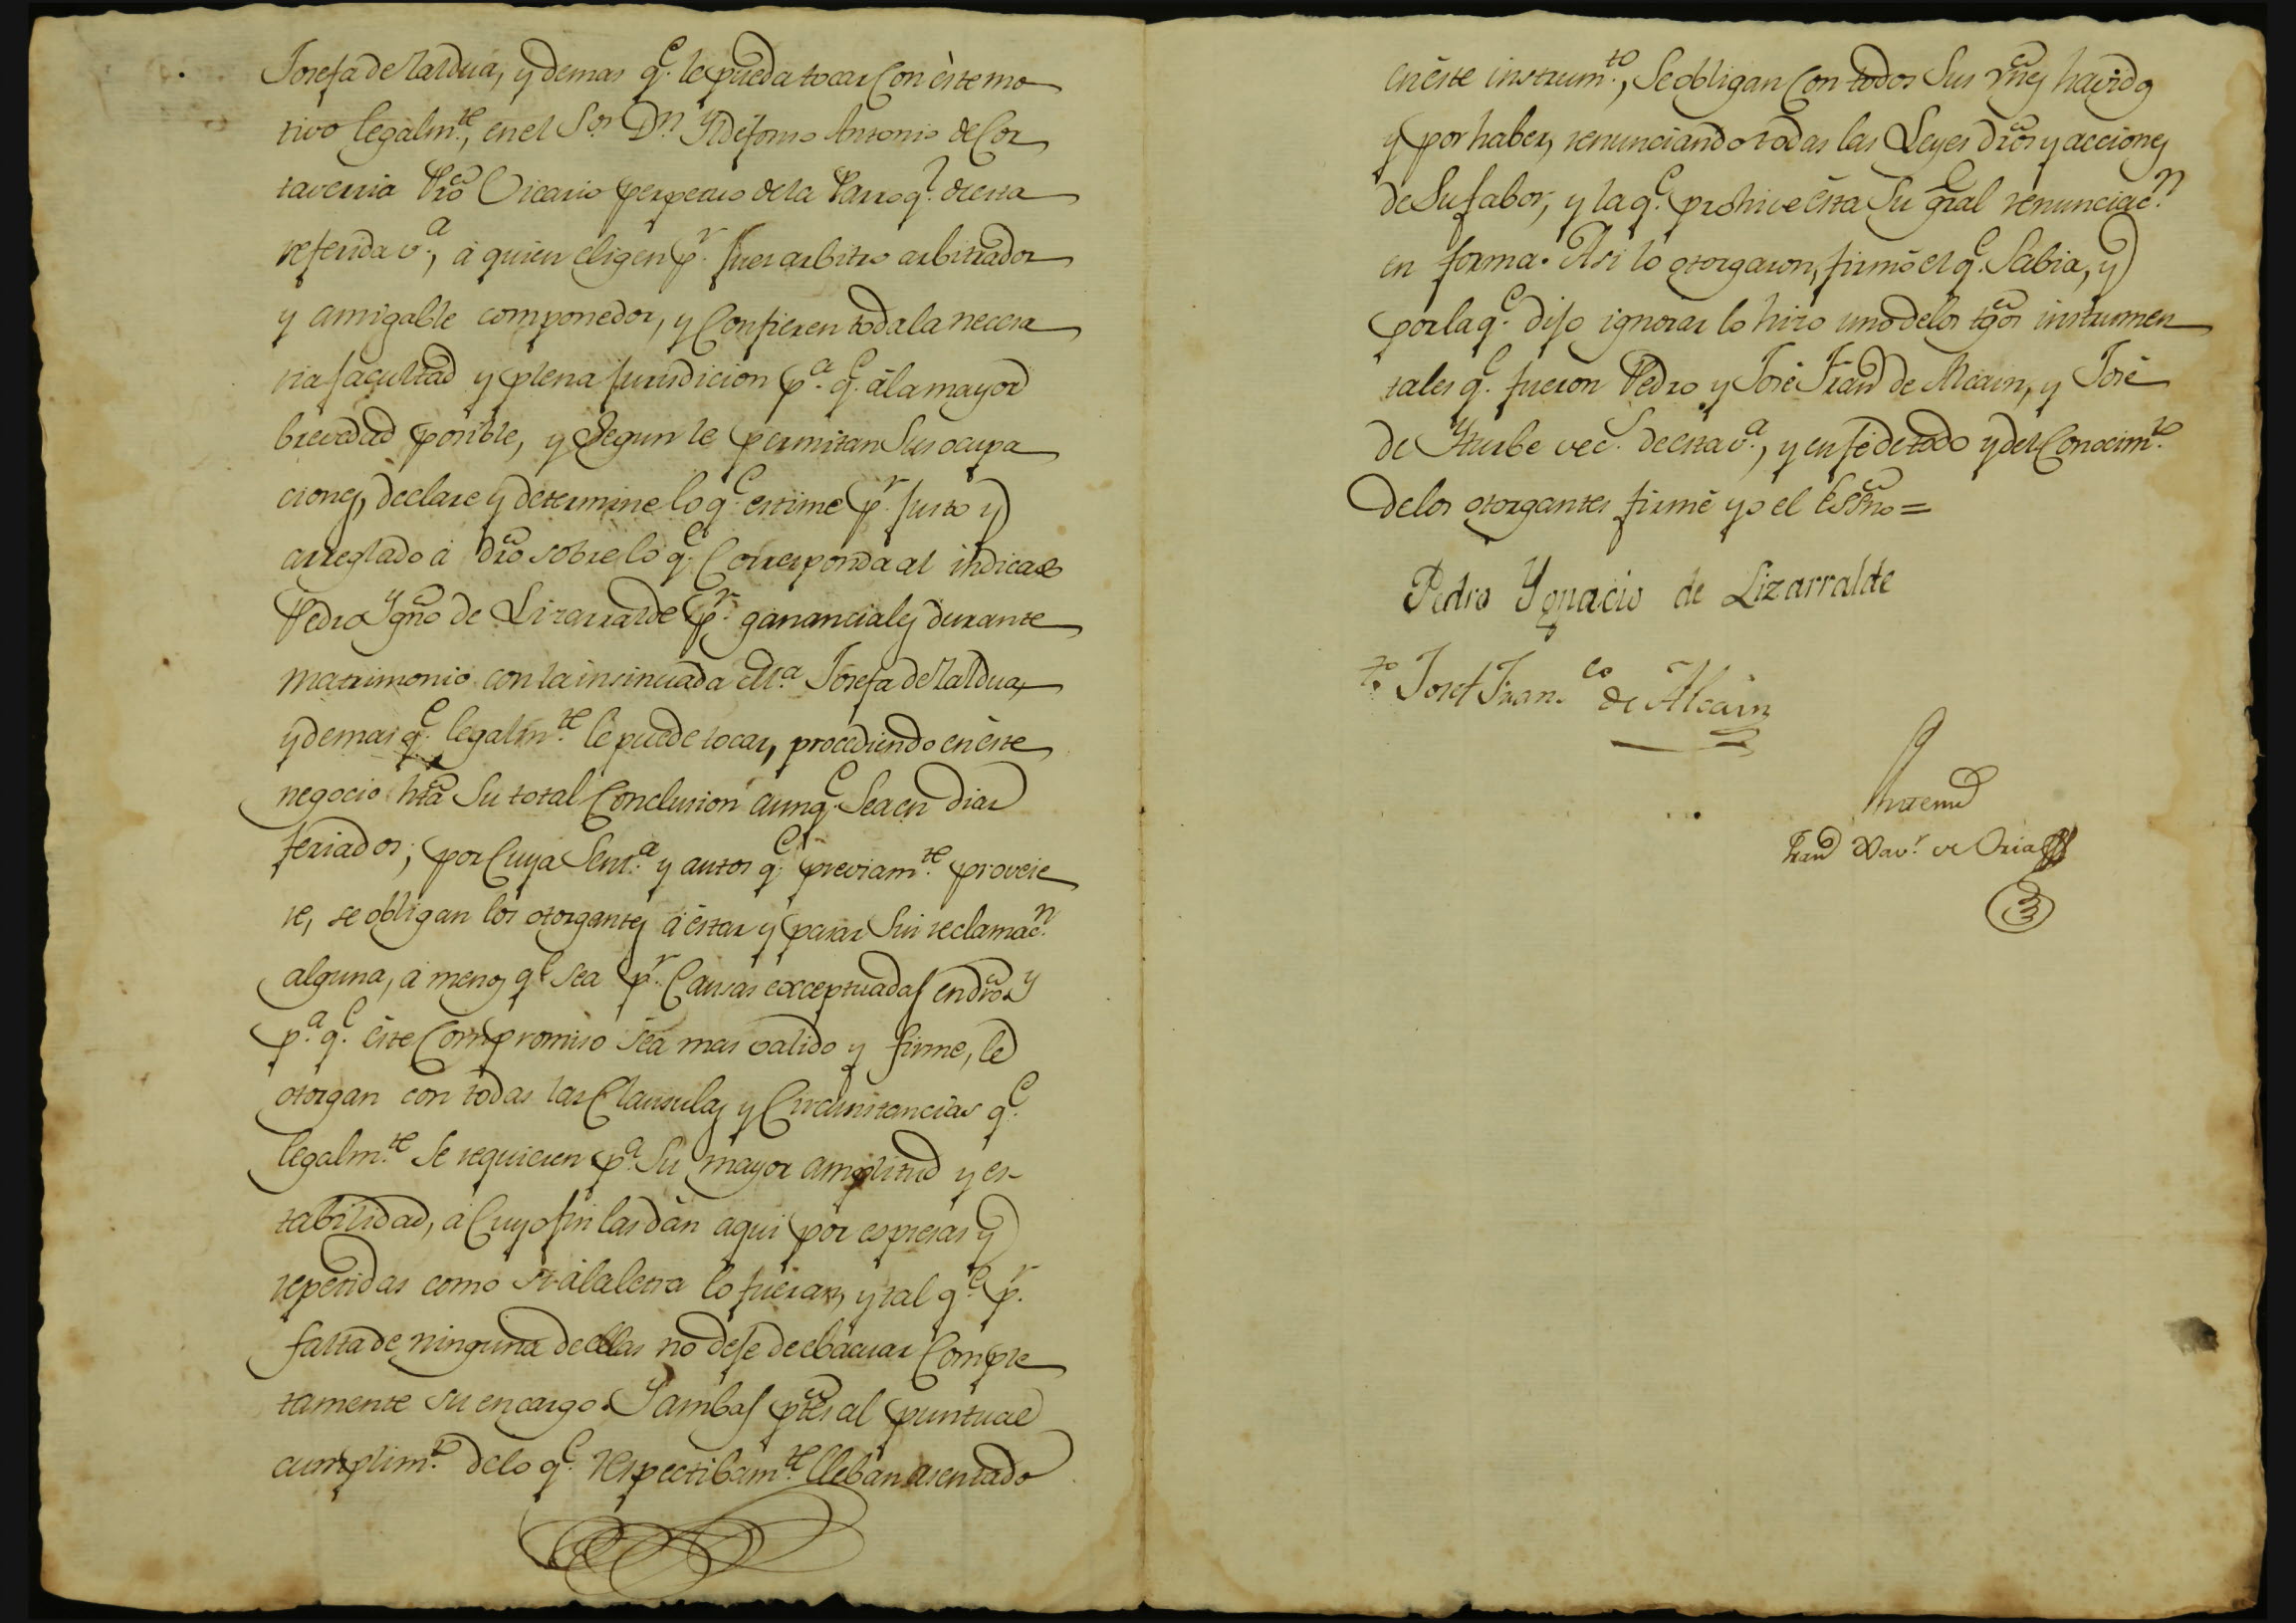 Josefa de Zaldua, y demas q.e le pueda tocar con éste mo
tivo legalm.te, en el S.or D.n Yldefonso Antonio de Cor
taverria Pro Vicario perpetuo de la Parroq.l de esta
referida v.a, á quien eligen p.r Juez arbitro arbitrador
y amigable componedor, y confieren toda la necesa
ria facultad y plena Jurisdicion p.a q.e á la mayor
brevedad posible, y segun le permitan sus ocupa
ciones, declare y determine lo q.e estime p.r Justo y
arreglado á dro sobre lo q.e corresponda al indicado
Pedro Ygno de Lizarralde p.r gananciales durante
matrimonio con la insinuada M.a Josefa de Zaldua,
y demas q.e legalm.te le puede tocar, procediendo en éste
negocio hta su total conclusion aunq.e sea en dias
feriados; por cuya Sent.a y autos q.e previam.te proveie
re, se obligan los otorgantes á éstar y pasar sin reclamac.n
alguna, á menos q.e sea p.r causas exceptuadas en dro. Y
p.a q.e éste compromiso séa mas valido y firme, le
otorgan con todas las clausulas y circunstancias q.e
legalm.te se requieren p.a su mayor amplitud y es-
tabilidad, á cuyo fin las dán aqui por espresas y
repetidas como si á la letra lo fueran, y tal q.e p.r
falta de ninguna de ellas no deje de ebacuar comple
tamente su encargo. Y ambas ptes al puntual
cumplim.to de lo q.e respectibam.te lleban asentado
en éste instrum.to, se obligan con todos sus vnes havidos
y por haber, renunciando todas las Leyes dros y acciones
de su fabor, y la q.e prohive ésta su gral renunciac.n
en forma. Asi lo otorgaron, firmó el q.e sabia, y
por la q.e dijo ignorar lo hizo uno de los tgos instrumen
tales q.e fueron Pedro y José Fran.co de Alcain, y José
de Yturbe vec.s de esta v.a, y en fé de todo y del conocim.to
de los otorgantes firmé yo el Esno =
Pedro Ygnacio de Lizarralde
t.o Josef Fran.co de Alcain
Ante mi
Fran.co Xav.r de Oria